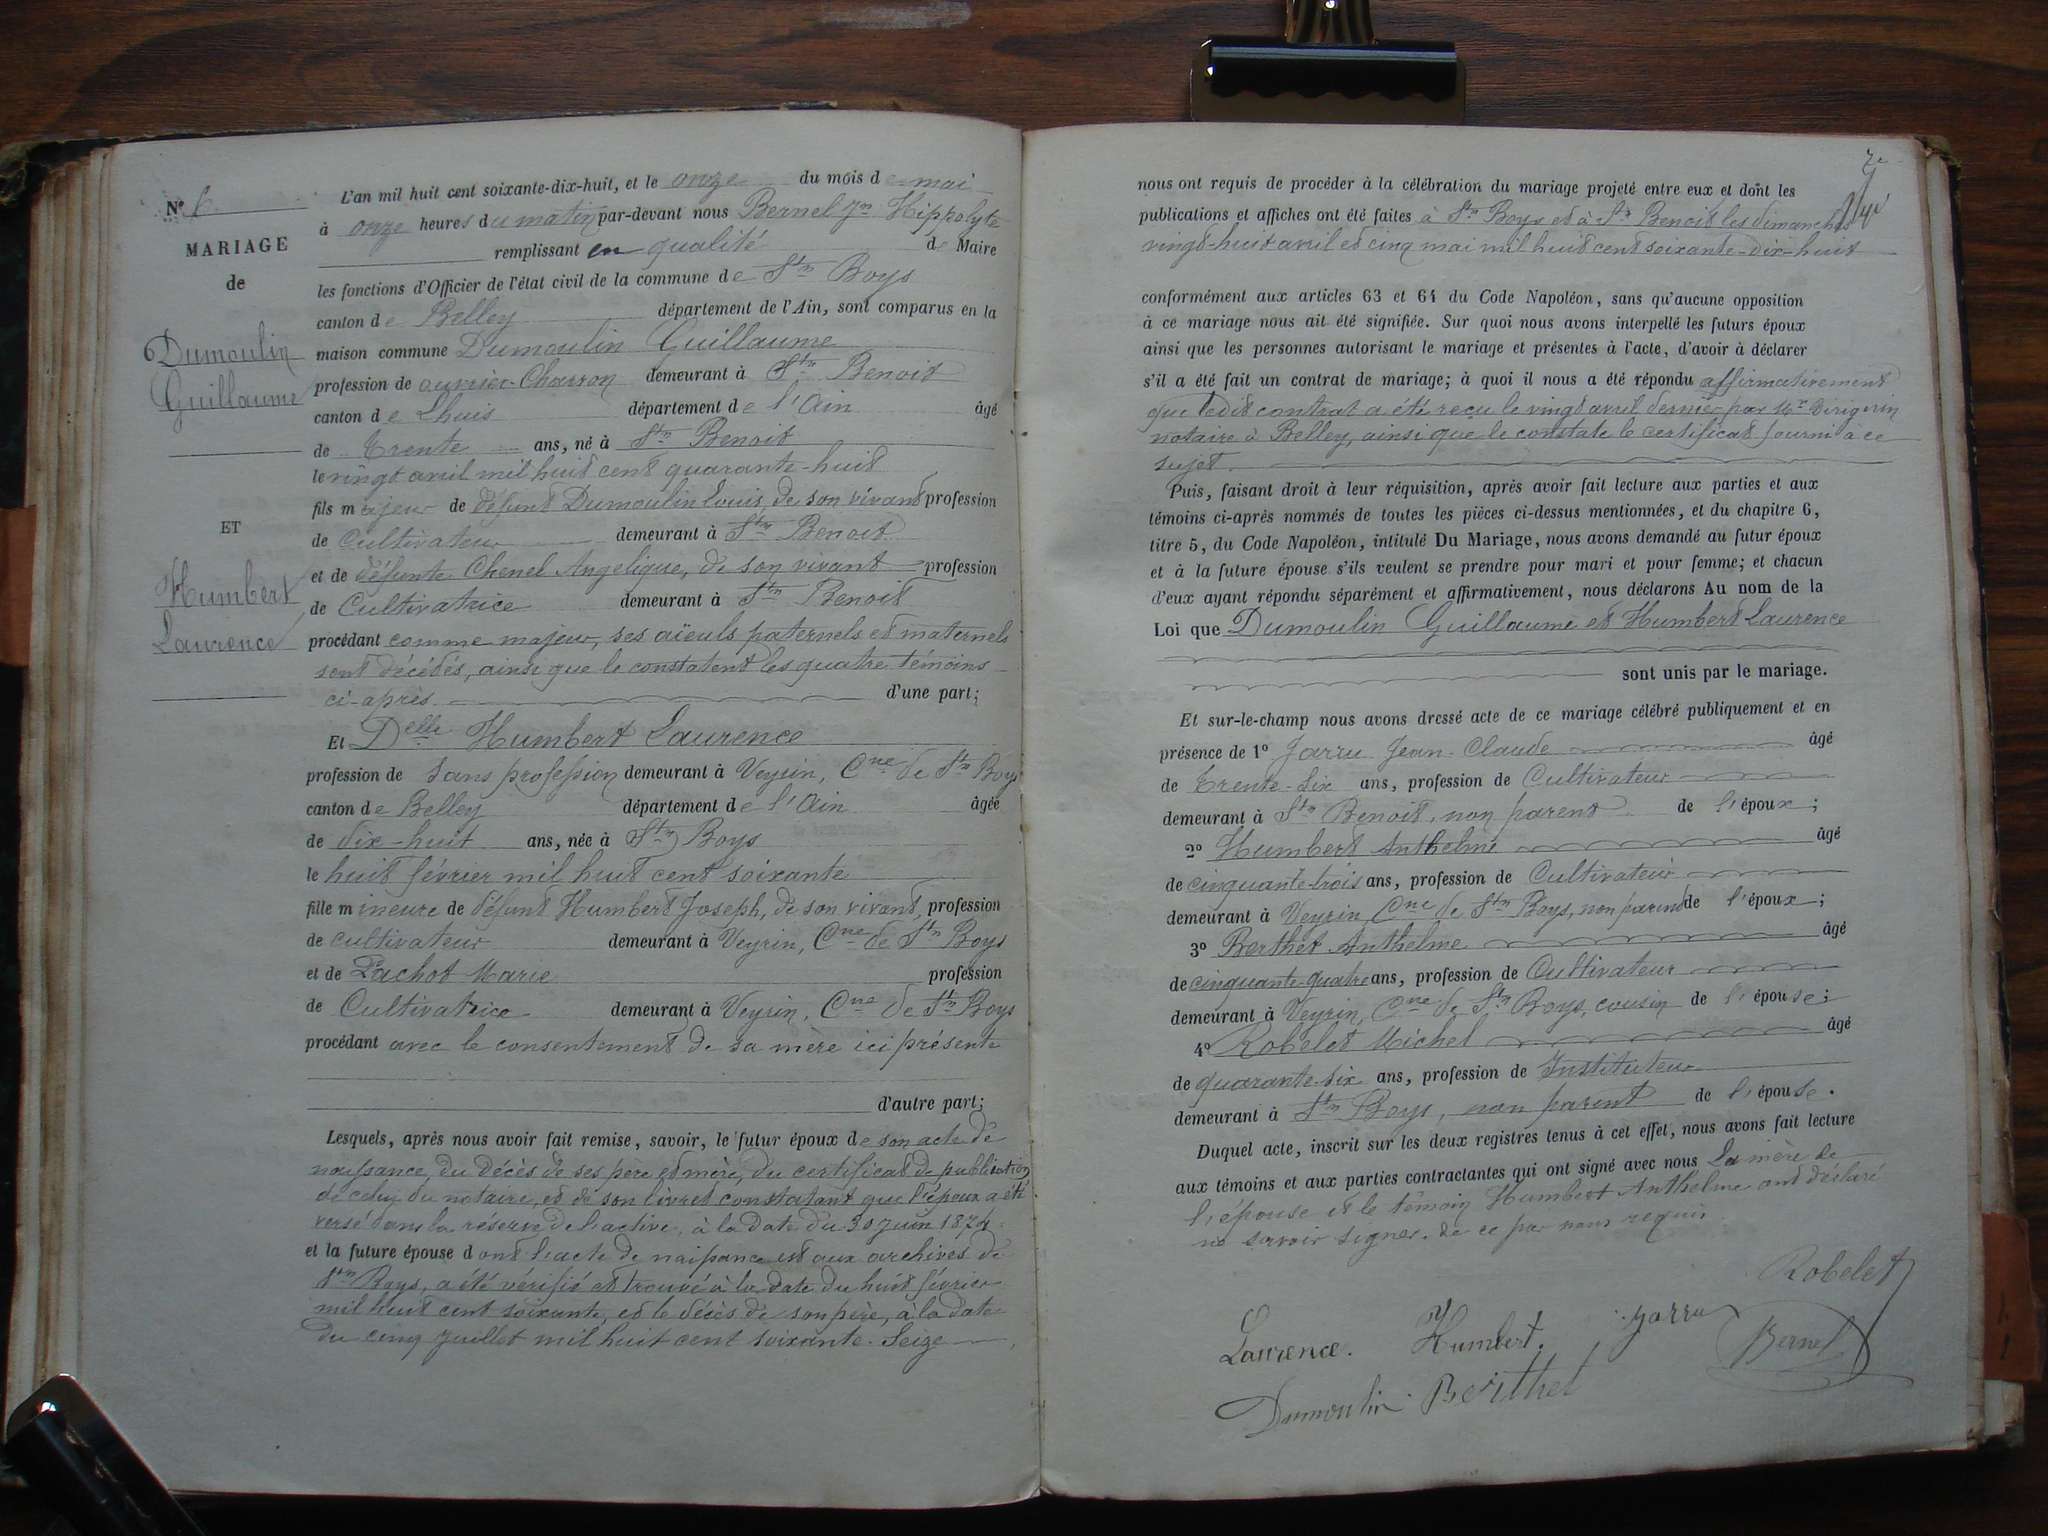 Nº
MARIAGE
de
Dumoulin
Guillaume
ET
Humbert
Laurence
L'an mil huit cent soixante-dix-huit, et le onze du mois de mai
à onze heures du matin par-devant nous Bernel Hippolyte
remplissant en qualité de Maire
les fonctions d'Officier de l'état civil de la commune de Stn Boys
canton de Belley département de l'Ain, sont comparus en la
maison commune Dumoulin Guillaume
profession de ouvrier-Charron demeurant à Stn Benoit
canton de Lhuis département de l'Ain âgé
de Trente ans, né à Stn Benoit
le vingt avril mil huit cent quarante-huit
fils majeur de défunt Dumoulin Louis, de son vivant profession
de Cultivateur demeurant à Stn Benoit
et de défunte Chenel Angélique, de son vivant profession
de Cultivatrice demeurant à Stn Benoit
procédant comme majeur, ses aïeuls paternels et maternels
sont décédés, ainsi que le constatent les quatre témoins
ci-après d'une part;
Et Delle Humbert Laurence
profession de sans profession demeurant à Veyrin, Cne de Stn Boys
canton de Belley département de l'Ain âgée
de dix-huit ans, née à Stn Boys
le huit février mil huit cent soixante
fille mineure de défunt Humbert Joseph, de son vivant, profession
de cultivateur demeurant à Veyrin, Cne de Stn Boys
et de Pachot Marie profession
de Cultivatrice demeurant à Veyrin, Cne de Stn Boys
procédant avec le consentement de sa mère ici présente
d'autre part;
Lesquels, après nous avoir fait remise, savoir, le futur époux de son acte de
naissance, du décès de ses père et mère, du certificat de publication
de celui du notaire, et de son livret constatant que l'époux a été
versé dans la réserve de l'active, à la date du 30 juin 1874
et la future épouse dont l'acte de naissance est aux archives de
Stn Boys, a été vérifié et trouvé à la date du huit février
mil huit cent soixante, et le décès de son père, à la date
du cinq juillet mil huit cent soixante-Seize
nous ont requis de procéder à la célébration du mariage projeté entre eux et dont les
publications et affiches ont été faites à Stn Boys et à Stn Benoit les dimanches
vingt-huit avril et cinq mai mil huit cent soixante-dix-huit
conformément aux articles 63 et 64 du Code Napoléon, sans qu'aucune opposition
à ce mariage nous ait été signifiée. Sur quoi nous avons interpellé les futurs époux
ainsi que les personnes autorisant le mariage et présentes à l'acte, d'avoir à déclarer
s'il a été fait un contrat de mariage; à quoi il nous a été répondu affirmativement
que ledit contrat a été reçu le vingt avril dernier par Me
notaire à Belley, ainsi que le constate le certificat fourni à ce
sujet
Puis, faisant droit à leur réquisition, après avoir fait lecture aux parties et aux
témoins ci-après nommés de toutes les pièces ci-dessus mentionnées, et du chapitre 6,
titre 5, du Code Napoléon, intitulé Du Mariage, nous avons demandé au futur époux
et à la future épouse s'ils veulent se prendre pour mari et pour femme; et chacun
d'eux ayant répondu séparément et affirmativement, nous déclarons Au nom de la
Loi que Dumoulin Guillaume et Humbert Laurence
sont unis par le mariage.
Et sur-le-champ nous avons dressé acte de ce mariage célébré publiquement et en
présence de 1º Jarru Jean-Claude âgé
de Trente-six ans, profession de Cultivateur
demeurant à Stn Benoit, non parent de l'époux;
2º Humbert Anthelme âgé
de cinquante-trois ans, profession de Cultivateur
demeurant à Veyrin, Cne de Stn Boys, non parent de l'époux;
3º Berthet Anthelme âgé
de cinquante-quatre ans, profession de Cultivateur
demeurant à Veyrin, Cne de Stn Boys, cousin de l'épouse;
4º Robelet Michel âgé
de quarante-six ans, profession de Instituteur
demeurant à Stn Boys, non parent de l'épouse.
Duquel acte, inscrit sur les deux registres tenus à cet effet, nous avons fait lecture
aux témoins et aux parties contractantes qui ont signé avec nous La mère de
l'épouse et le témoin Humbert Anthelme ont déclaré
ne savoir signer. de ce par nous requis.
Robelet
Laurence. Humbert. Jarru
Bernel
Dumoulin Berthet